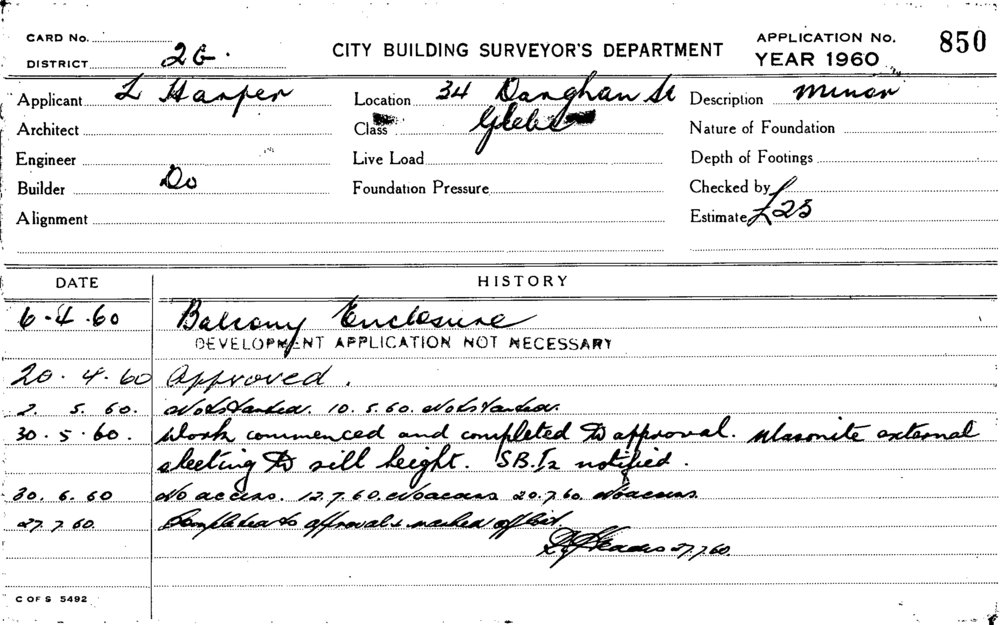 CARD No.
DISTRICT 2G.
CITY BUILDING SURVEYOR'S DEPARTMENT
APPLICATION No. 850
YEAR 1960
Applicant L Harper
Location 34 Darghan St
Description Minor
Architect
Class Glebe
Nature of Foundation
Engineer
Live Load
Depth of Footings
Builder Do
Foundation Pressure
Checked by
Alignment
Estimate £23
DATE HISTORY
6.4.60 Balcony Enclosure
DEVELOPMENT APPLICATION NOT NECESSARY
20.4.60 Approved.
2. 5. 60. Not started. 10.5.60. Not started.
30.5.60. Work commenced and completed to approval. Masonite external
sheeting to sill height. notified.
30. 6. 60 No access. 12.7.60. No access 20.7.60. No access.
27.7.60. Completed to approval & marked off list
27.7.60.
C OF S 5492